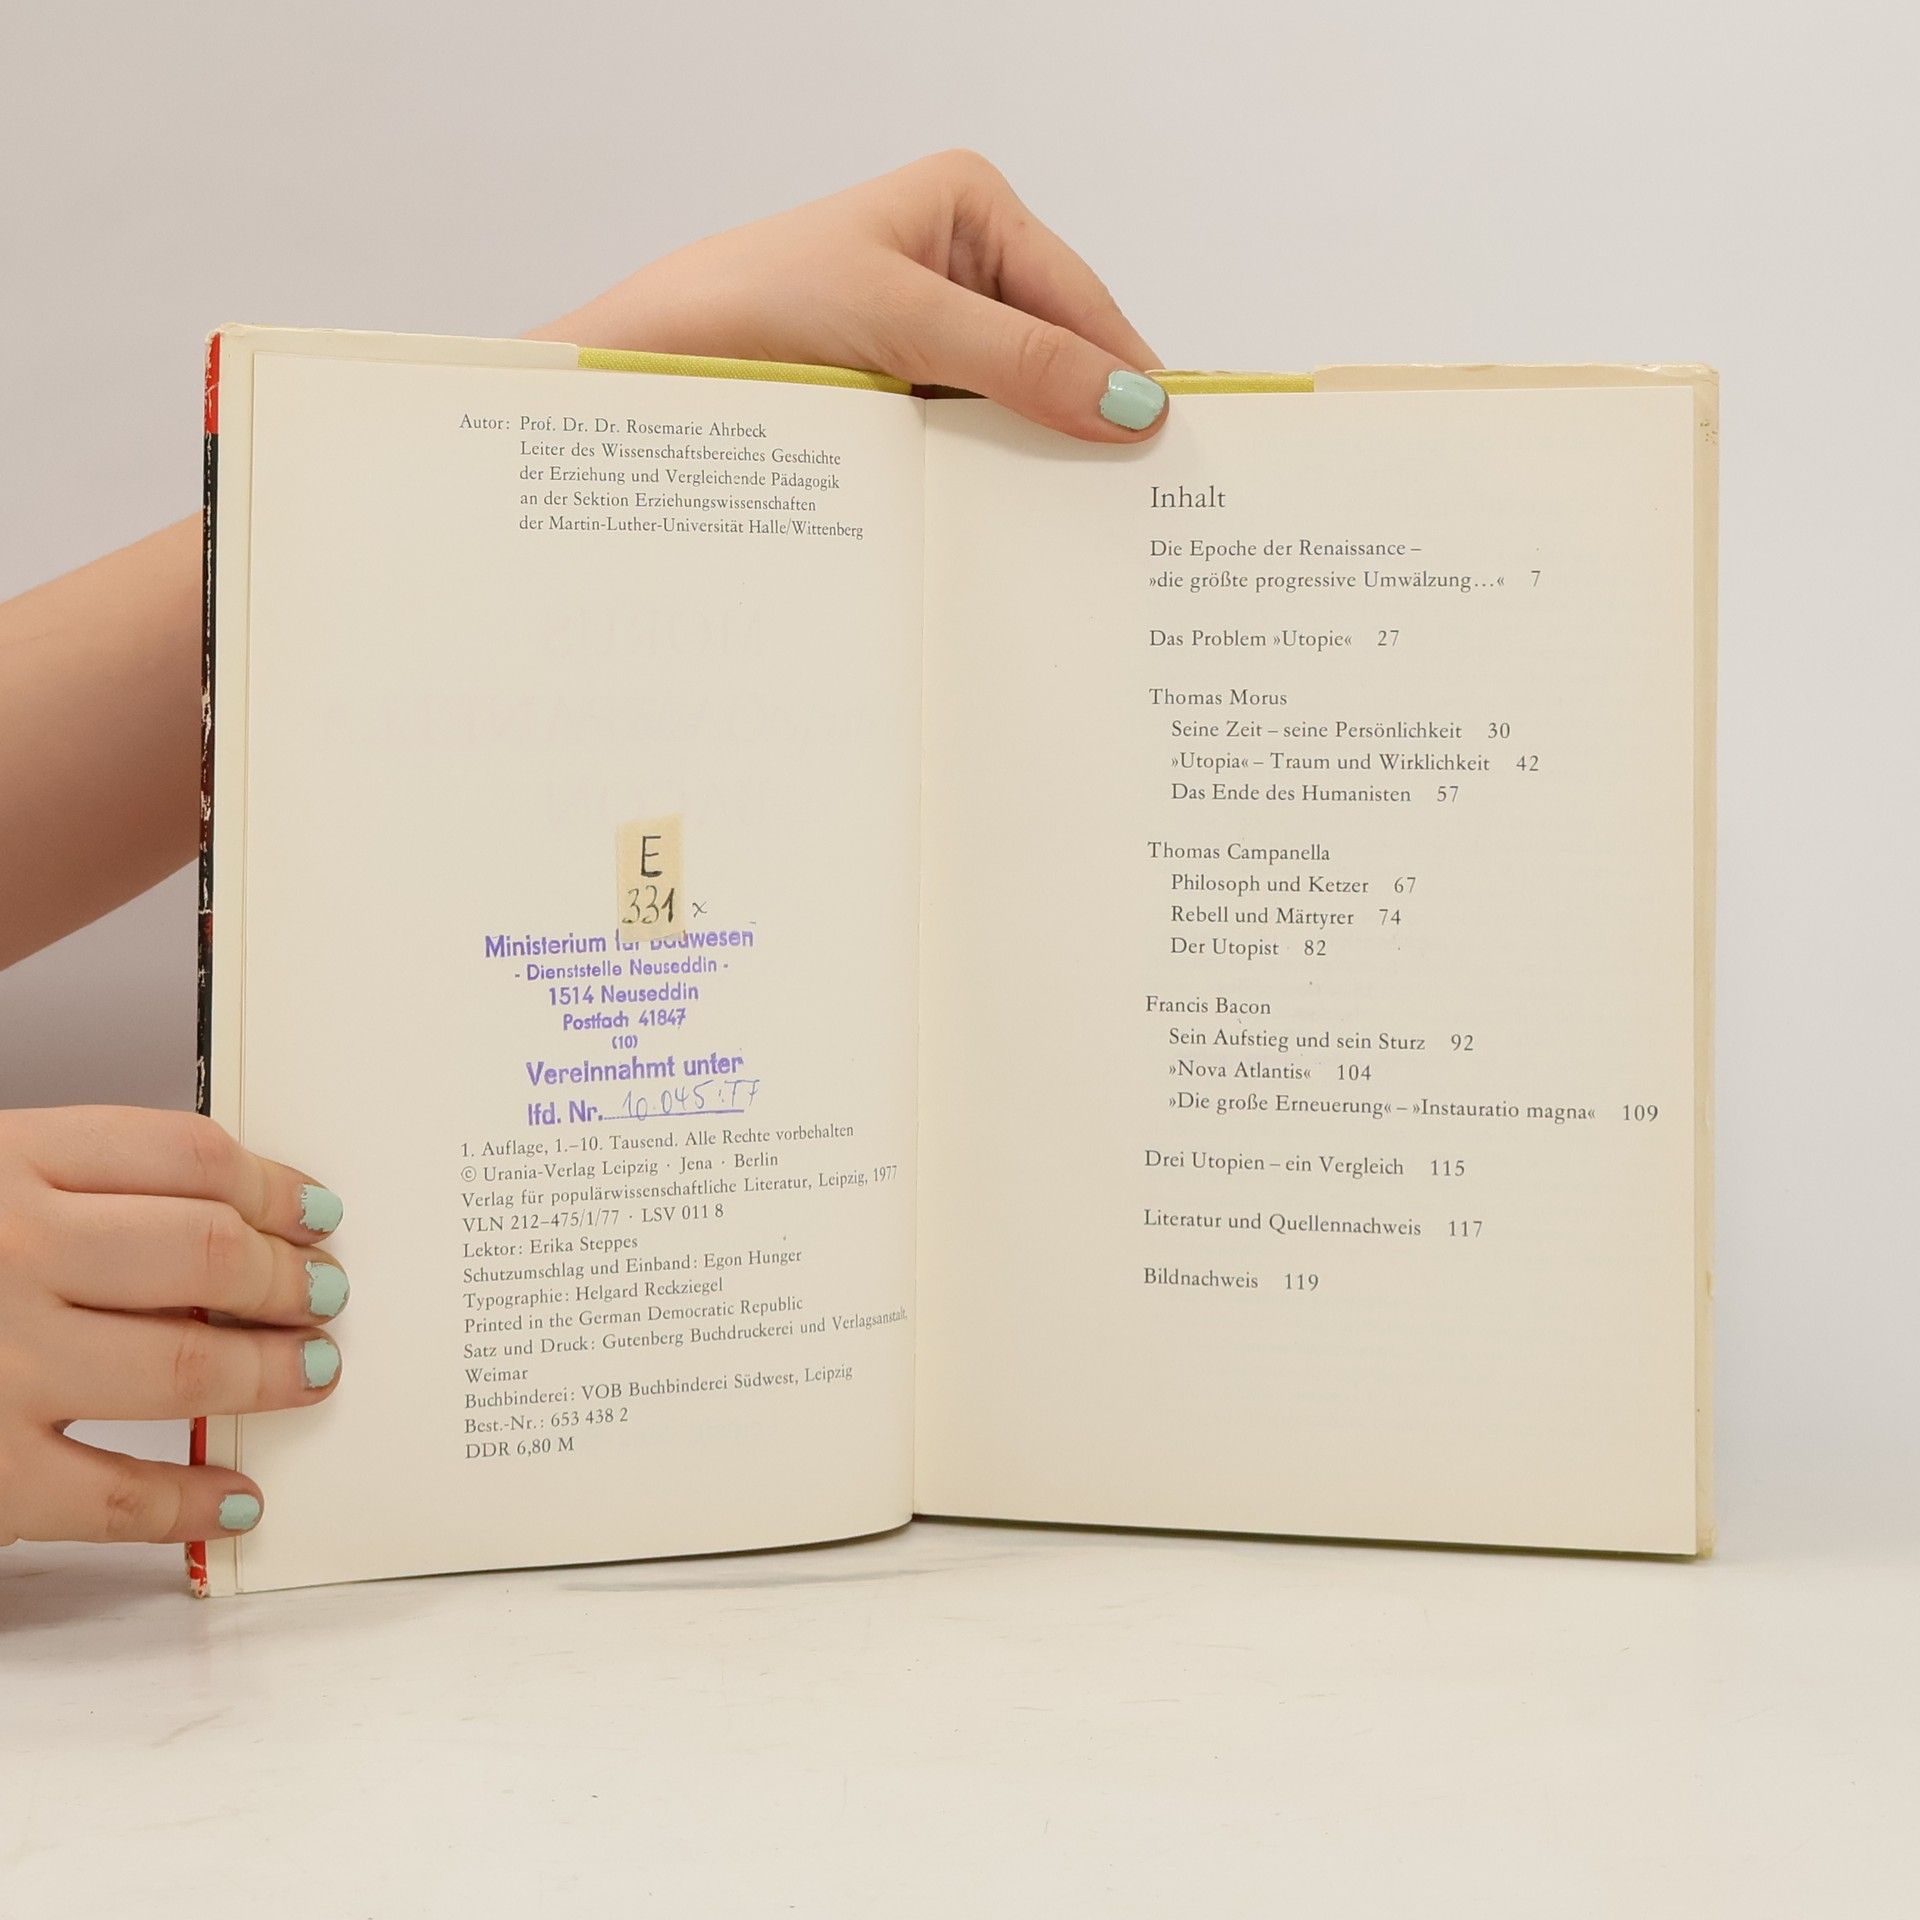 Autor: Prof. Dr. Dr. Rosemarie Ahrbeck
Leiter des Wissenschaftsbereiches Geschichte
der Erziehung und Vergleichende Pädagogik
an der Sektion Erziehungswissenschaften
der Martin-Luther-Universität Halle/Wittenberg
E
331 x
Ministerium für Bauwesen
- Dienststelle Neuseddin -
1514 Neuseddin
Postfach 41847
(10)
Vereinnahmt unter
lfd. Nr. 10.045:77
1. Auflage, 1.–10. Tausend. Alle Rechte vorbehalten
© Urania-Verlag Leipzig · Jena · Berlin
Verlag für populärwissenschaftliche Literatur, Leipzig, 1977
VLN 212–475/1/77 · LSV 011 8
Lektor: Erika Steppes
Schutzumschlag und Einband: Egon Hunger
Typographie: Helgard Reckziegel
Printed in the German Democratic Republic
Satz und Druck: Gutenberg Buchdruckerei und Verlagsanstalt,
Weimar
Buchbinderei: VOB Buchbinderei Südwest, Leipzig
Best.-Nr.: 653 438 2
DDR 6,80 M
Inhalt
Die Epoche der Renaissance –
»die größte progressive Umwälzung...« 7
Das Problem »Utopie« 27
Thomas Morus
Seine Zeit – seine Persönlichkeit 30
»Utopia« – Traum und Wirklichkeit 42
Das Ende des Humanisten 57
Thomas Campanella
Philosoph und Ketzer 67
Rebell und Märtyrer 74
Der Utopist 82
Francis Bacon
Sein Aufstieg und sein Sturz 92
»Nova Atlantis« 104
»Die große Erneuerung« – »Instauratio magna« 109
Drei Utopien – ein Vergleich 115
Literatur und Quellennachweis 117
Bildnachweis 119